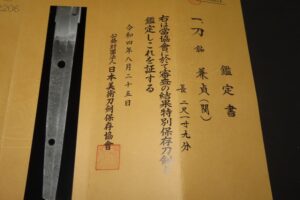 鑑定書
一、刀 銘 兼貞(関)
長 二尺一寸九分
右は當協會に於て審査の結果特別保存刀剣と
鑑定しこれを証する
令和四年八月二十五日
公益財団法人日本美術刀剣保存協會
2206